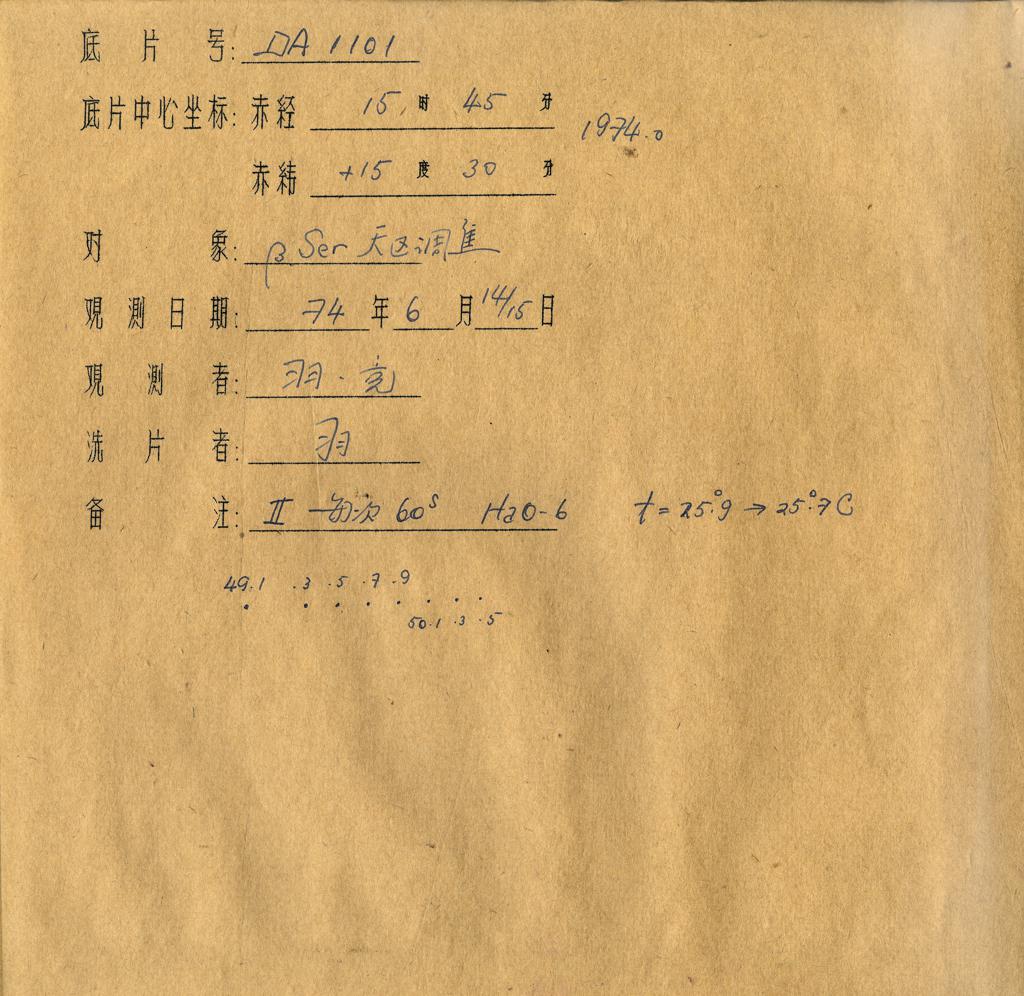 底片号: DA 1101
底片中心坐标: 赤经 15时 45分 1974.0
赤纬 +15度 30分
对象: β Ser 天区调焦
观测日期: 74年6月14/15日
观测者: 羽·竞
洗片者: 羽
备注: II 每次 60ˢ HaO-6 t = 25°.9 → 25°.7 C
49.1 .3 .5 .7 .9
50.1 .3 .5